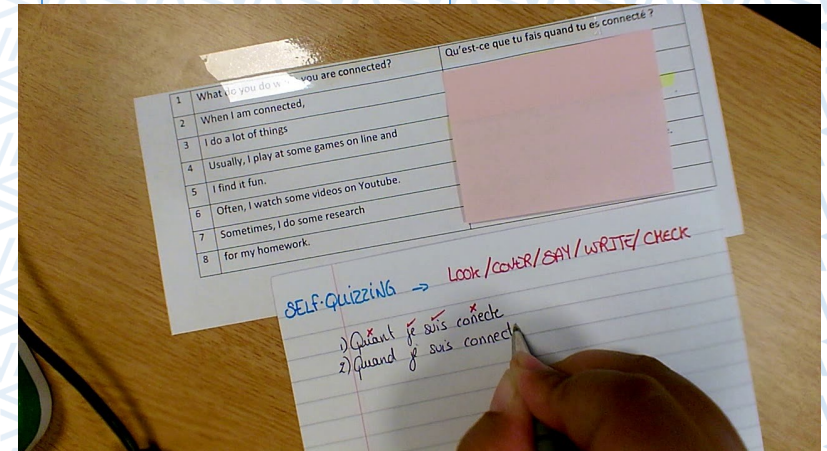 Qu'est-ce que tu fais quand tu es connecté ?
1 What do you do when you are connected?
2 When I am connected,
3 I do a lot of things
4 Usually, I play at some games on line and
5 I find it fun.
6 Often, I watch some videos on Youtube.
7 Sometimes, I do some research
8 for my homework.
SELF-QUIZZING → LOOK/COVER/SAY/WRITE/CHECK
1) Quant je suis conecte
2) Quand je suis connect